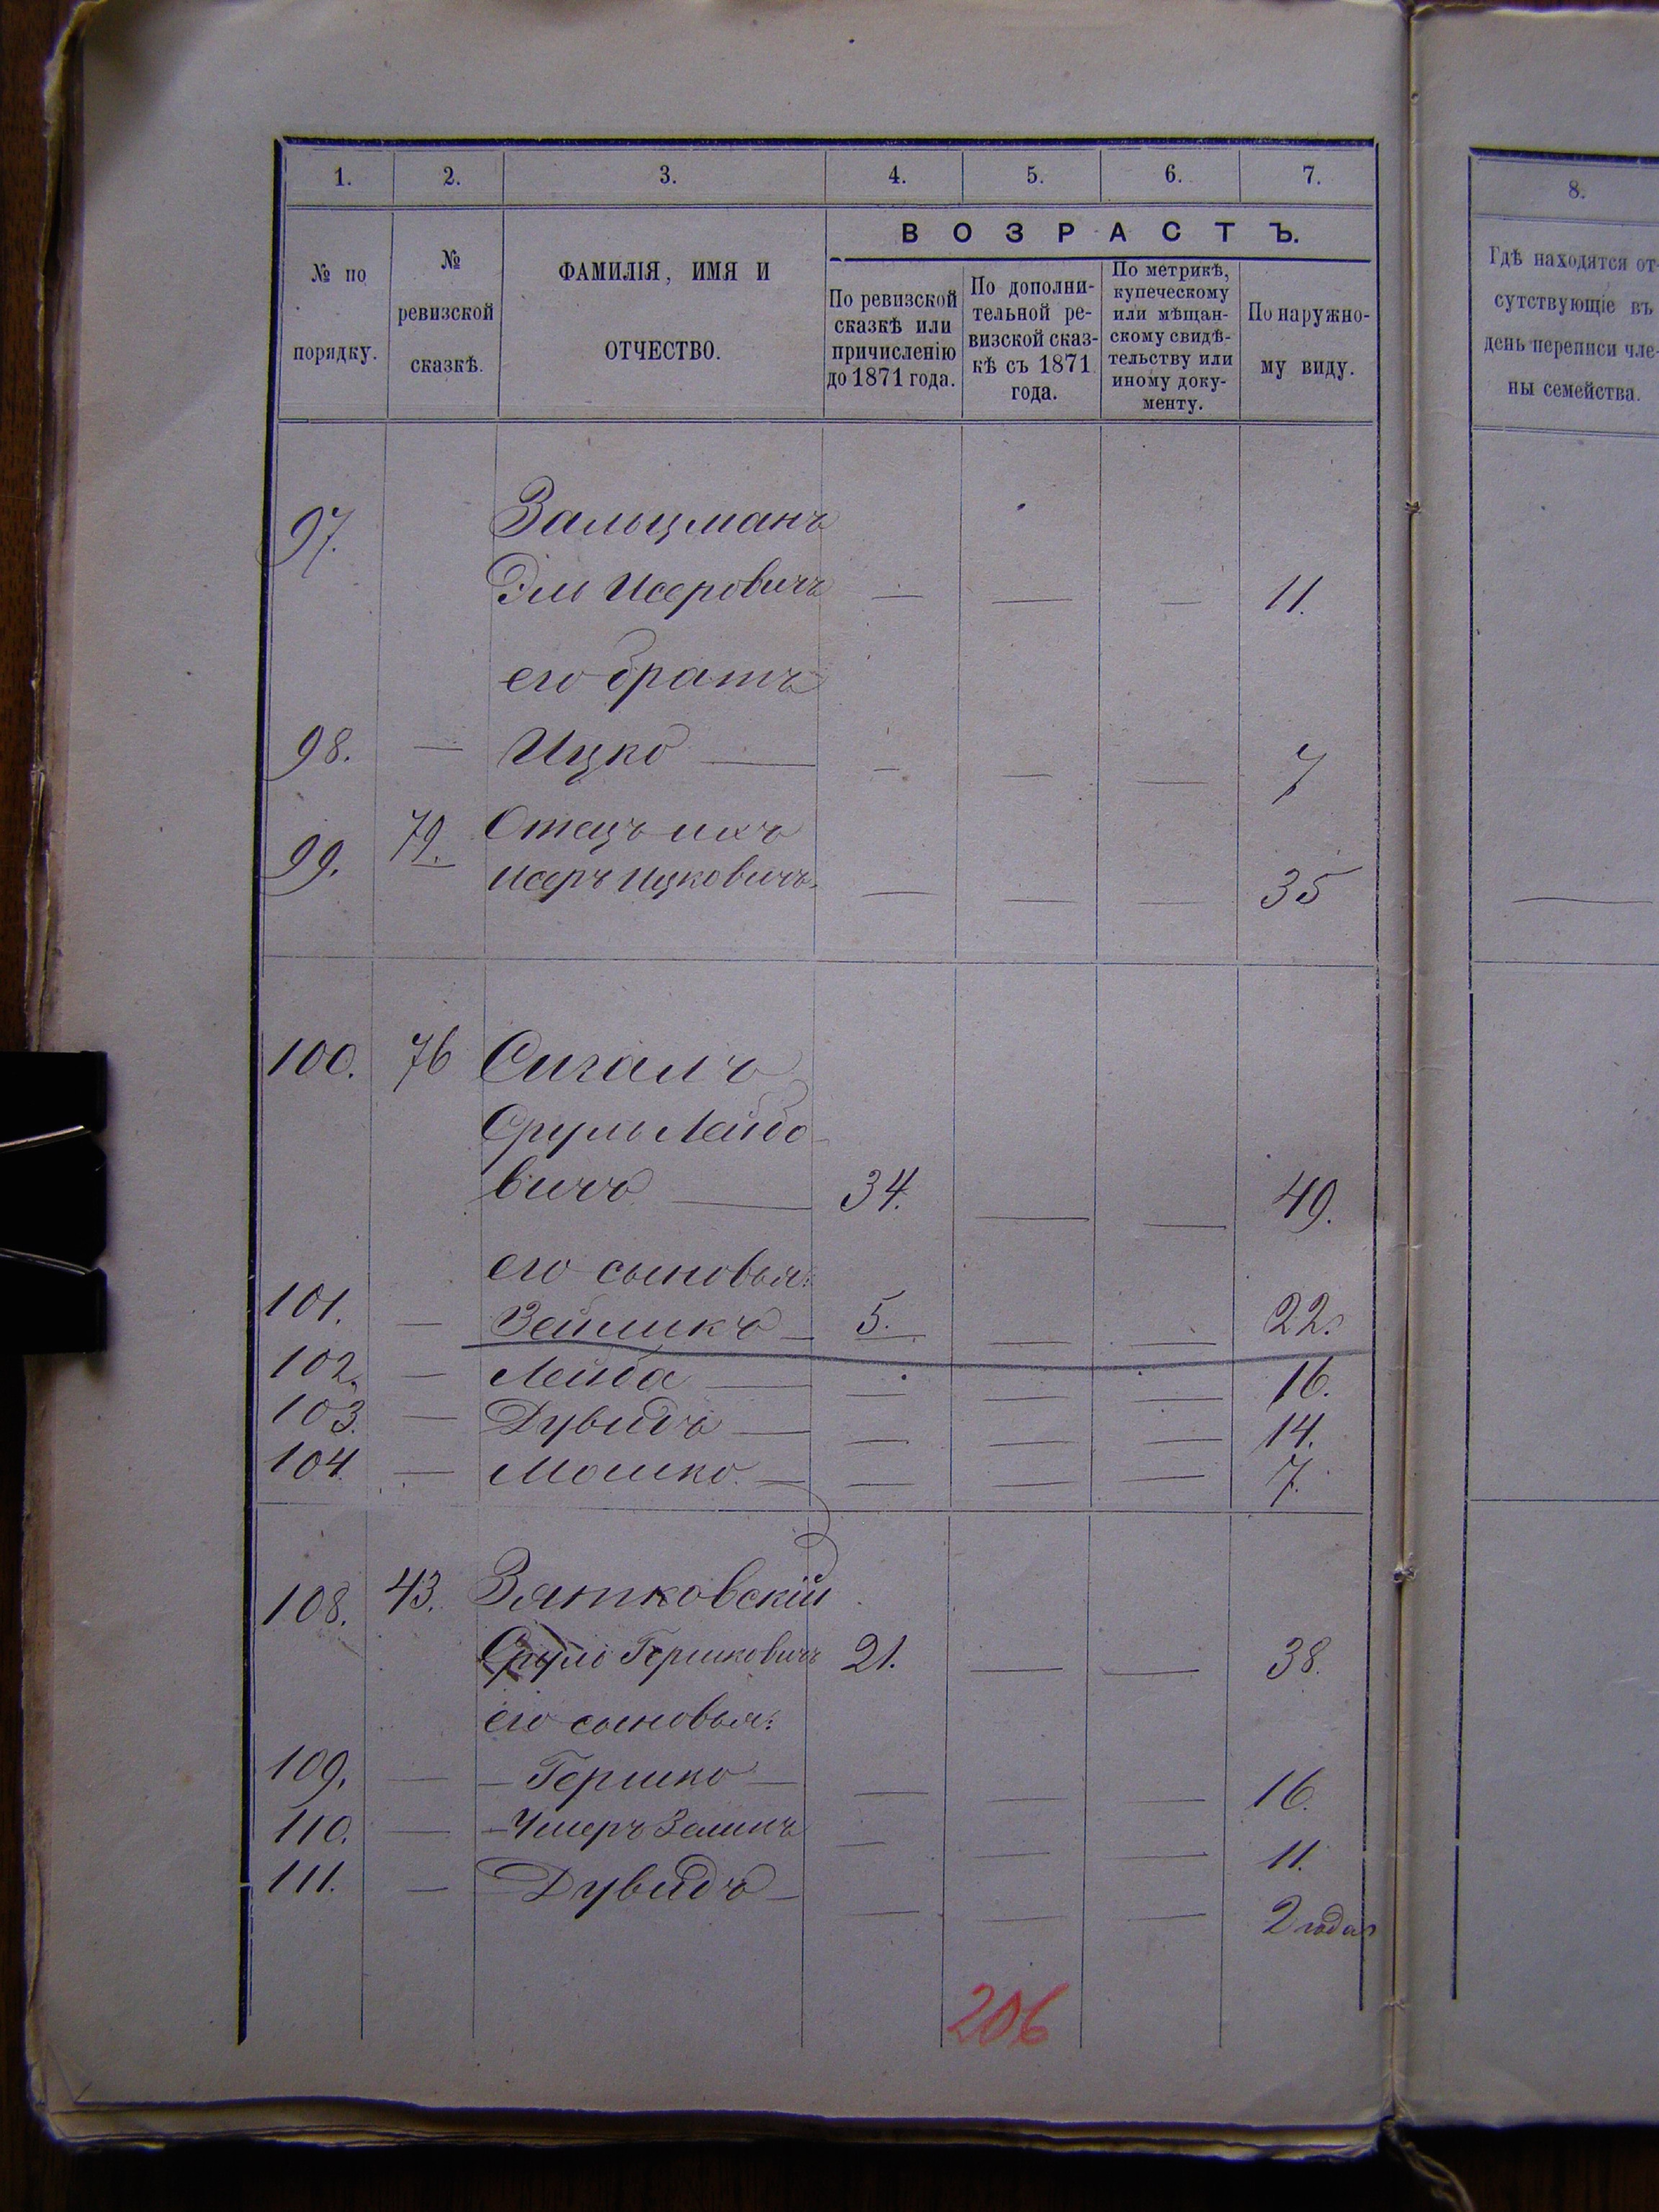 1. 2. 3. 4. 5. 6. 7.
№ по порядку.
№ ревизской сказкѣ.
ФАМИЛІЯ, ИМЯ И ОТЧЕСТВО.
ВОЗРАСТЪ.
По ревизской сказкѣ или причисленію до 1871 года.
По дополни-тельной ре-визской сказ-кѣ съ 1871 года.
По метрикѣ, купеческому или мѣщан-скому свидѣ-тельству или иному доку-менту.
По наружно-му виду.
97. Зальцманъ
Эль Исеровичъ — — — 11.
его братъ
98. — Ицко — — — — 7
99. 79. Отецъ ихъ
Исеръ Ицковичъ — — — 35
100. 76 Сигалъ
Сруль Лейбо
вичъ — 34. — — 49.
его сыновья:
101. — Зейликъ — 5. — — 22.
102. — Лейба — — — — 16.
103. — Дувидъ — — — — 14.
104. — Мошко. — — — — 7.
108. 43. Зятковскій
Сруль Гершковичъ 21. — — 38.
его сыновья:
109. — — Гершко — — — — 16.
110. — — Зеликъ — — — 11.
111. — — Дувидъ — — — — 2 года
206
8.
Гдѣ находятся от-
сутствующіе въ
день переписи чле-
ны семейства.